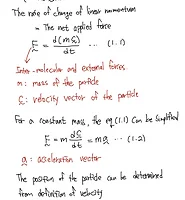 The rate of change of linear momentum
= The net applied force
F = d(m c) / dt ... (1.1)
Inter-molecular and external forces
m : mass of the particle
c : velocity vector of the particle
For a constant mass, the eq (1.1) can be simplified
F = m dc/dt = m a ... (1.2)
a : acceleration vector
The position of the particle can be determined
from definition of velocity